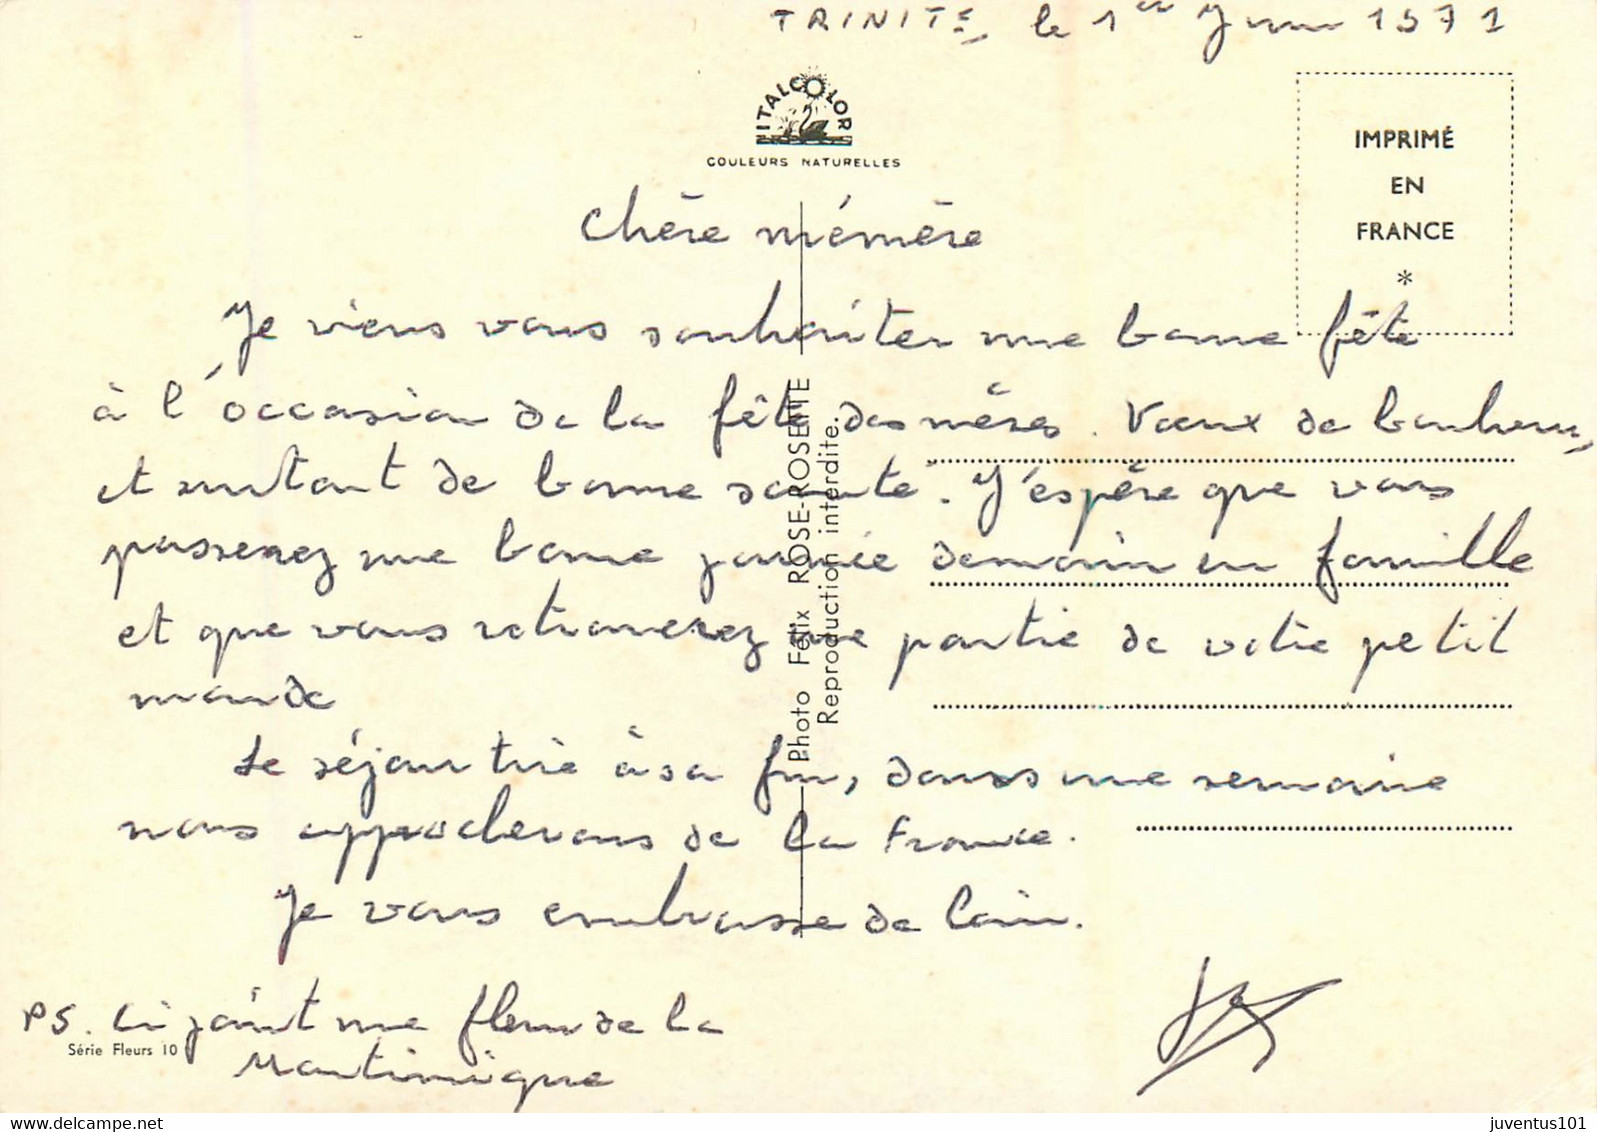 TRINITÉ, le 1er Juin 1971
ITALCOLOR
COULEURS NATURELLES
IMPRIMÉ
EN
FRANCE
*
Chère mémère
Je viens vous souhaiter une bonne fête
à l'occasion de la fête des mères. Vœux de bonheur,
et surtout de bonne santé. J'espère que vous
passerez une bonne journée demain en famille
et que vous retrouverez une partie de votre petit
monde
Le séjour tire à sa fin, dans une semaine
nous approcherons de la France.
Je vous embrasse de loin.
PS. Ci joint une fleur de la
Martinique
Série Fleurs 10
Photo Félix ROSE-ROSETTE
Reproduction interdite.
juventus101